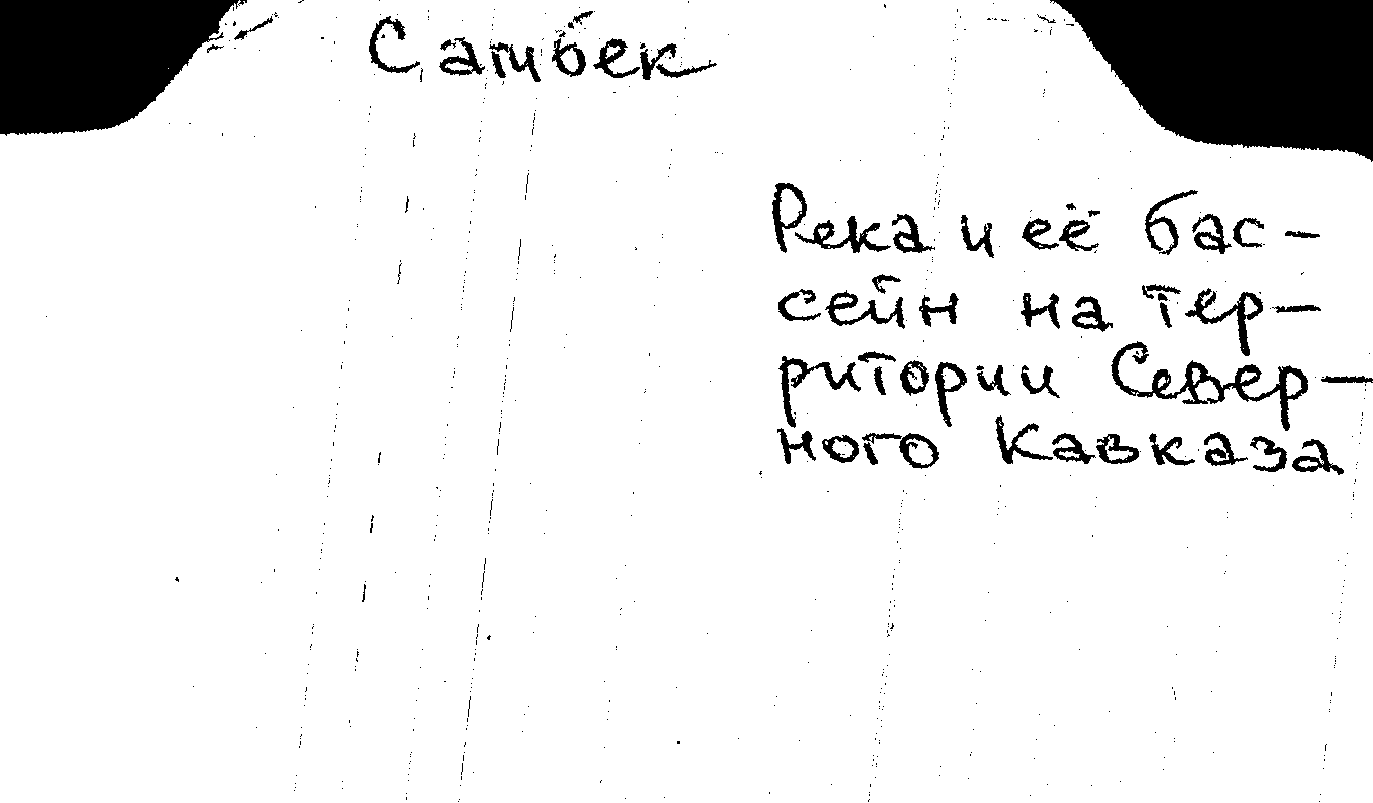 Самбек
Река и её бас-
сейн на тер-
ритории Север-
ного Кавказа